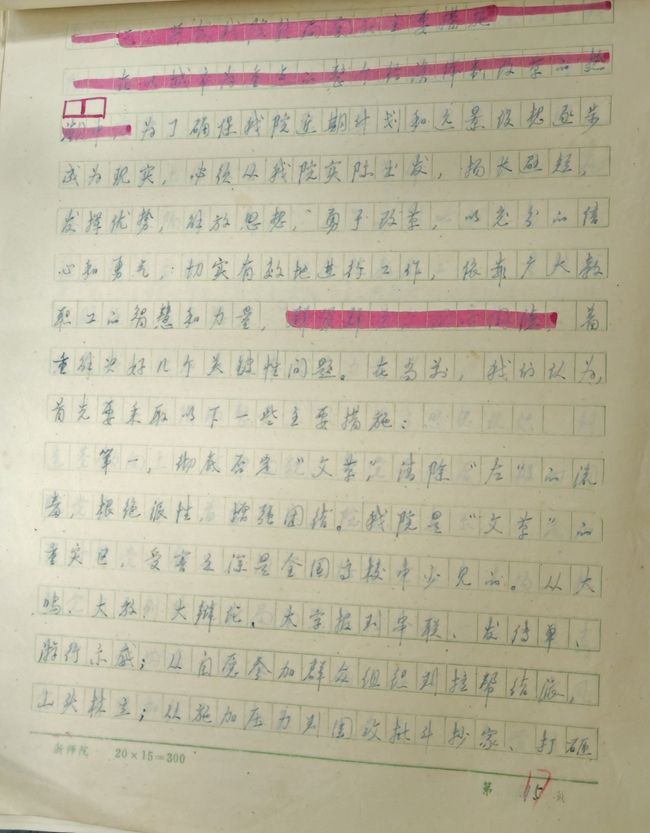 主要措施
在以城市为重点的整个经济体制改革的热
为了确保我院近期计划和远景设想逐步
成为现实，必须从我院实际出发，扬长避短，
发挥优势，解放思想，勇于改革，以充分的信
心和勇气，切实有效地进行工作，依靠广大教
职工的智慧和力量，着
重解决好几个关键性问题。在当前，我们认为，
首先要采取以下一些主要措施：
第一，彻底否定“文革”，清除“左”的流
毒，根绝派性，增强团结。我院是“文革”的
重灾区，受害之深是全国高校中少见的。从大
鸣、大放到大辩论、大字报到串联、发传单、
游行示威；从自愿参加群众组织到拉帮结派，
山头林立；从施加压力到围攻批斗抄家、打砸
新师院 20×15=300
第 15 页
17